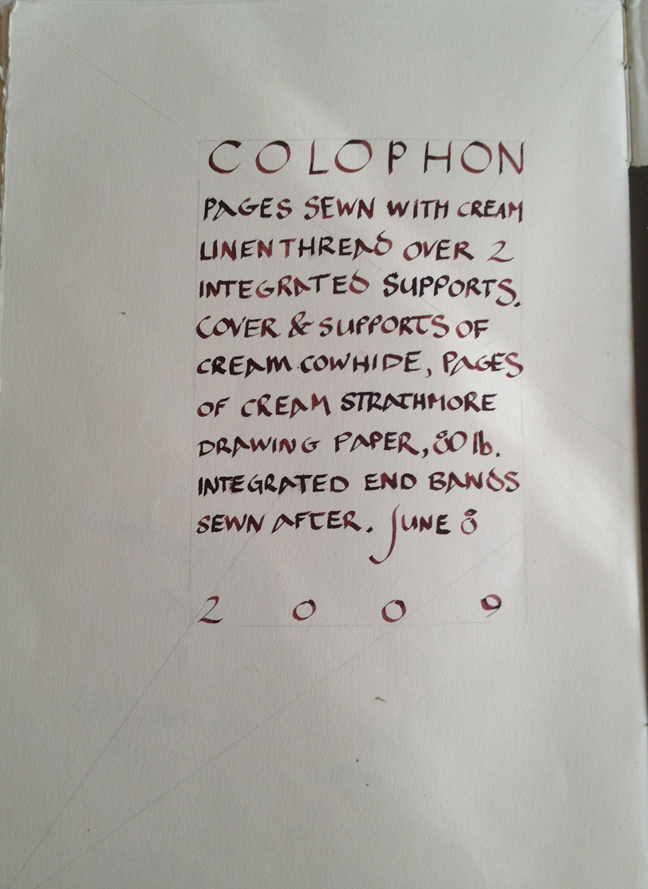 COLOPHON
PAGES SEWN WITH CREAM
LINEN THREAD OVER 2
INTEGRATED SUPPORTS.
COVER & SUPPORTS OF
CREAM COWHIDE, PAGES
OF CREAM STRATHMORE
DRAWING PAPER, 80 lb.
INTEGRATED END BANDS
SEWN AFTER. JUNE 8
2 0 0 9